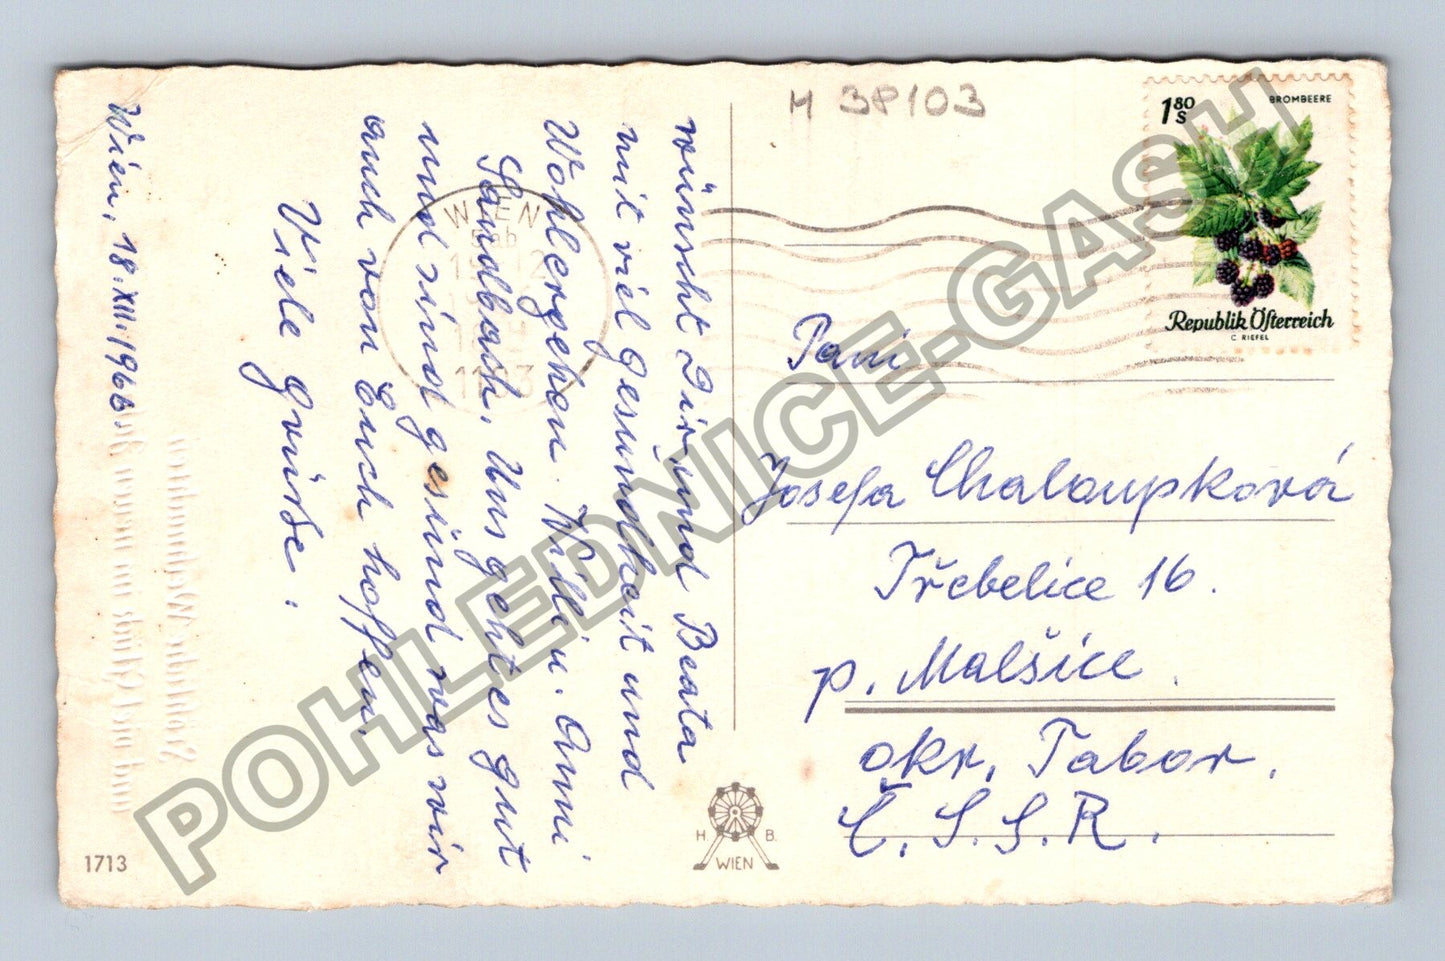 Wien, 18.XII.1966
wünscht Dir und Beata
mit viel Gesundheit und
Wohlergehen Willi u. Anni
Sandbach. Uns geht es gut
und sind gesund was wir
auch von Euch hoffen.
Viele Grüße.
M 38103
1 80 S
BROMBEERE
Republik Österreich
C. RIEFEL
WIEN
Paní
Josefa Chaloupková
Třebelice 16.
p. Malšice.
okr. Tabor.
Č.S.S.R.
H. B.
WIEN
1713
POHLEDNICE-GASH